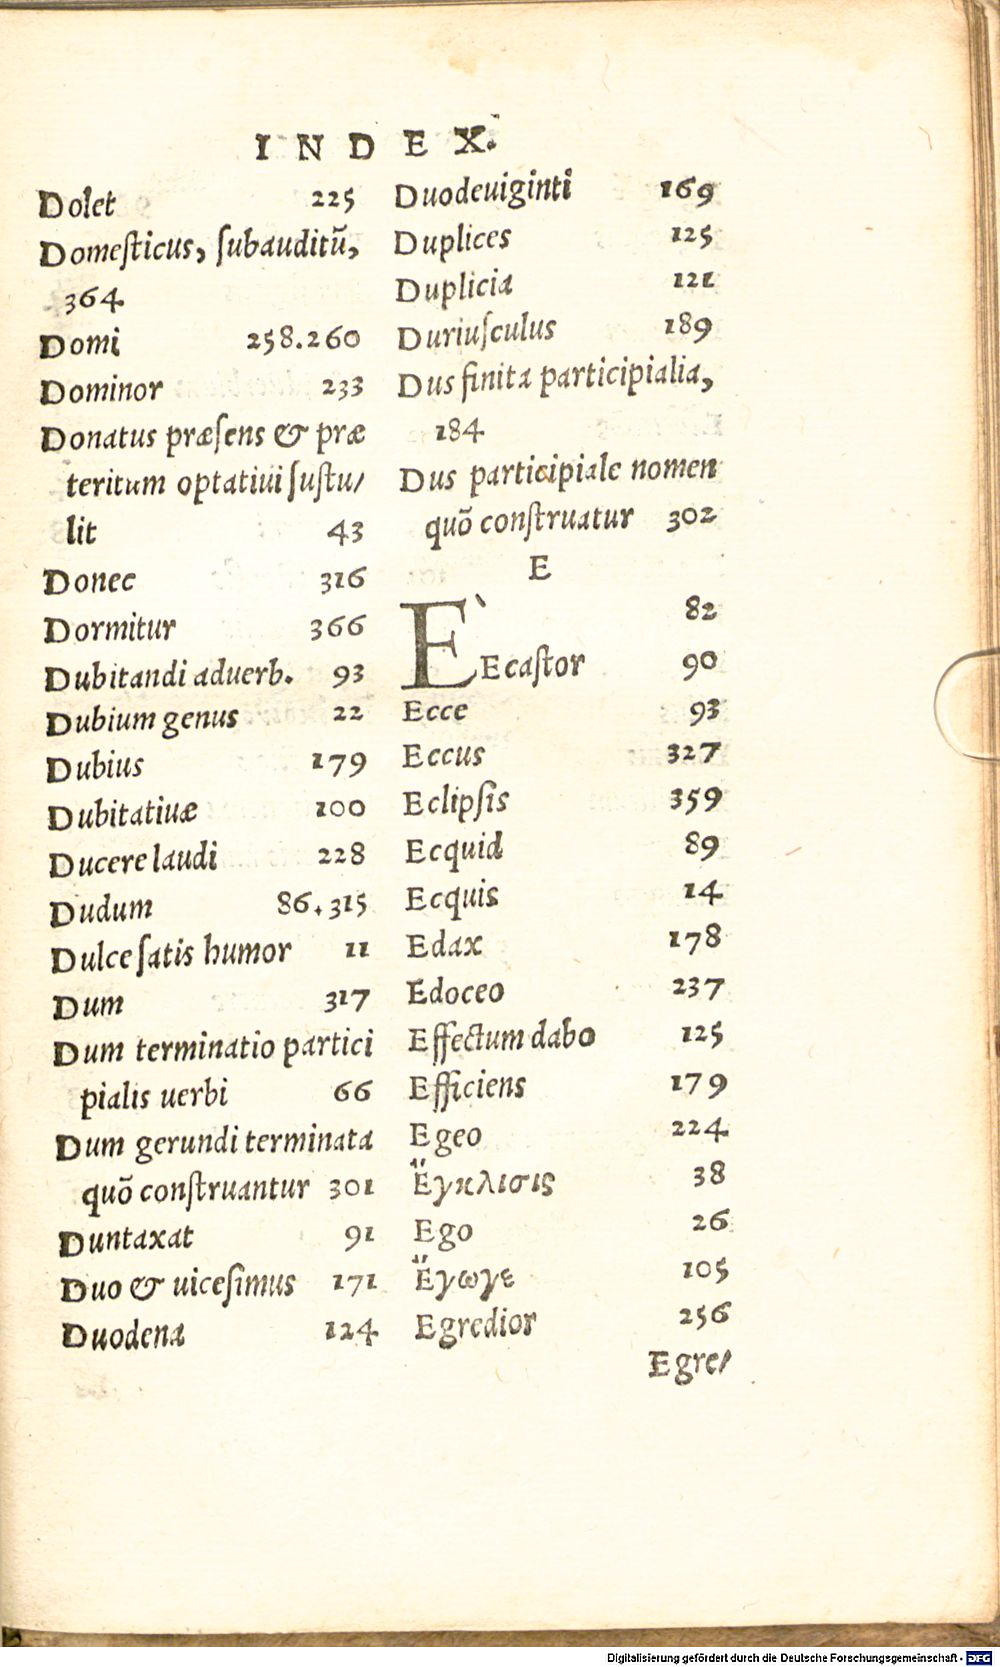 INDEX.
Dolet 225
Domeſticus, ſubauditū,
364
Domi 258.260
Dominor 233
Donatus præſens & præ
teritum optatiui ſuſtu/
lit 43
Donec 316
Dormitur 366
Dubitandi aduerb. 93
Dubium genus 22
Dubius 179
Dubitatiuæ 100
Ducere laudi 228
Dudum 86.315
Dulce ſatis humor 11
Dum 317
Dum terminatio partici
pialis uerbi 66
Dum gerundi terminata
quō conſtruantur 301
Duntaxat 91
Duo & uiceſimus 171
Duodena 124
Duodeuiginti 169
Duplices 125
Duplicia 121
Duriuſculus 189
Dus finita participialia,
184
Dus participiale nomen
quō conſtruatur 302
E
E` 82
Ecaſtor 90
Ecce 93
Eccus 327
Eclipſis 359
Ecquid 89
Ecquis 14
Edax 178
Edoceo 237
Effectum dabo 125
Efficiens 179
Egeo 224
Ἔγκλισις 38
Ego 26
Ἔγωγε 105
Egredior 256
Egre/
Digitalisierung gefördert durch die Deutsche Forschungsgemeinschaft - DFG